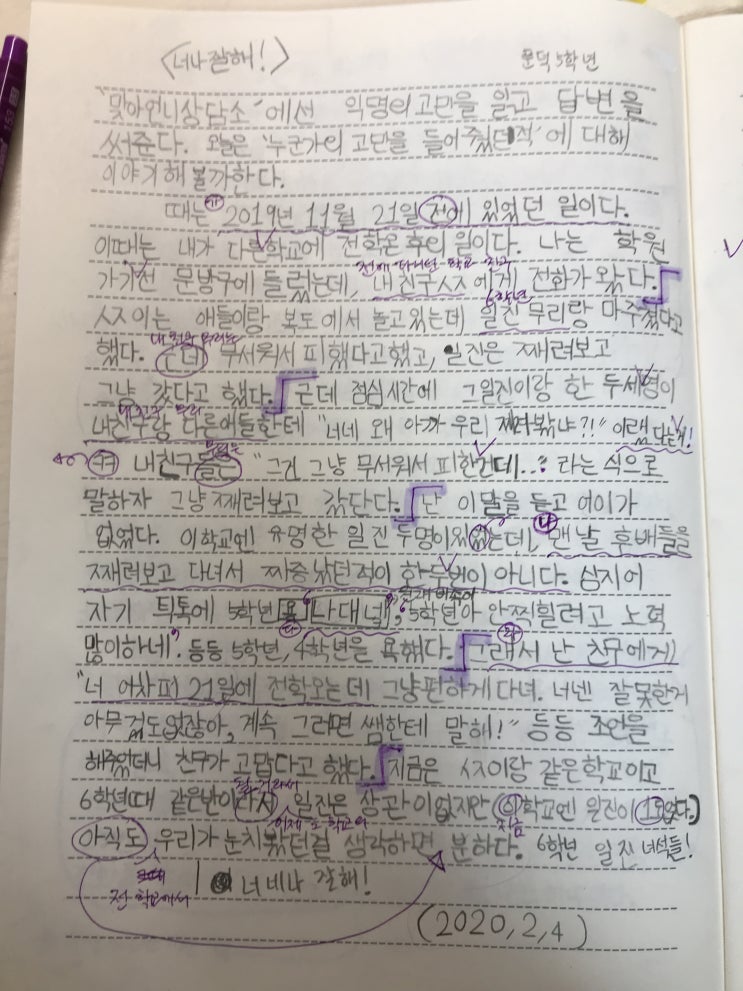 <너나 잘해!> 문덕 5학년
'맞아언니상담소'에선 익명의 고민을 읽고 답변을
써준다. 오늘은 '누군가의 고민을 들어 주었던적'에 대해
이야기 해 볼까한다.
때는 2019년 11월 21일 전에 있었던 일이다.
이때는 내가 다른학교에 전학온 후의 일이다. 나는 학원
전에 다니던 학교 친구
가기전 문방구에 들렀는데, 내친구 에게 전화가 왔다.
6학년
이는 애들이랑 복도에서 놀고있는데 일진 무리랑 마주쳤다고
했다. 근데 무서워서 피했다고 했고, 일진은 째려보고
그냥 갔다고 했다. 근데 점심시간에 그일진이랑 한 두세명이
내친구랑 다른애들한테 "너네 왜 아까 우리 째려봤냐?!" 이랬다는거!
내친구들은 "그건 그냥 무서워서 피한건데...? 라는 식으로
말하자 그냥 째려보고 갔단다. 난 이말을 듣고 어이가
없었다. 이학교엔 유명한 일진 두명이 있었는데, 맨날 후배들을
째려보고 다녀서 짜증났던적이 한두번이 아니다. 심지어
자기 틱톡에 5학년 나대넹, 5학년아 안찍힐려고 노력
많이하네. 등등 5학년, 4학년을 욕했다. 그래서 난 친구에게
"너 어차피 21일에 전학오는데 그냥편하게 다녀. 너넨 잘못한게
아무것도없잖아, 계속 그러면 쌤한테 말해!" 등등 조언을
해주었더니 친구가 고맙다고 했다. 지금은 이랑 같은학교이고
6학년때 같은반이라서 일진은 상관이없지만 이학교엔 일진이 없다.
아직도 우리가 눈치봤던걸 생각하면 분하다. 6학년 일진 녀석들!
전 학교에서
너네나 잘해!
(2020,2,4)